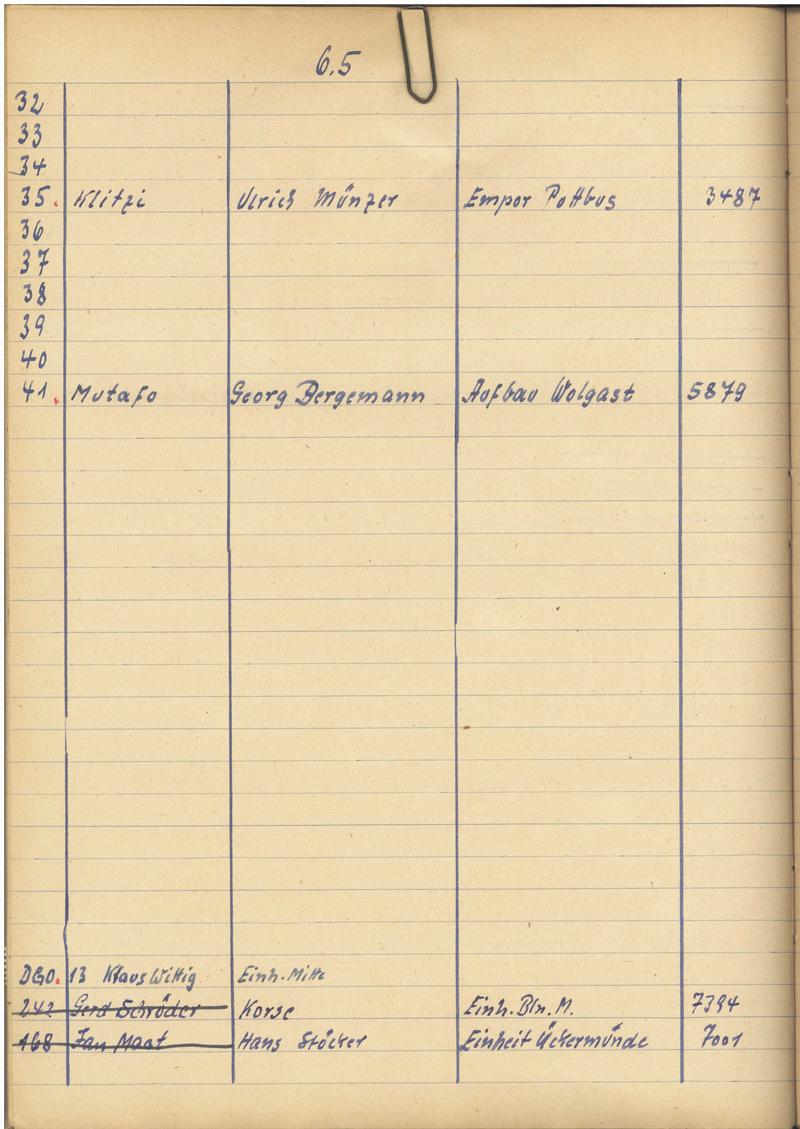 6.5
32
33
34
35. Klitzi Ulrich Münzer Empor Pottbus 3487
36
37
38
39
40
41. Mutafo Georg Bergemann Aufbau Wolgast 5879
DGO. 13 Klaus Wittig Einh. Mitte
242 Gerd Schröder Korse Einh. Bln. M. 7394
168 Jan Maat Hans Stöcker Einheit Ückermünde 7001